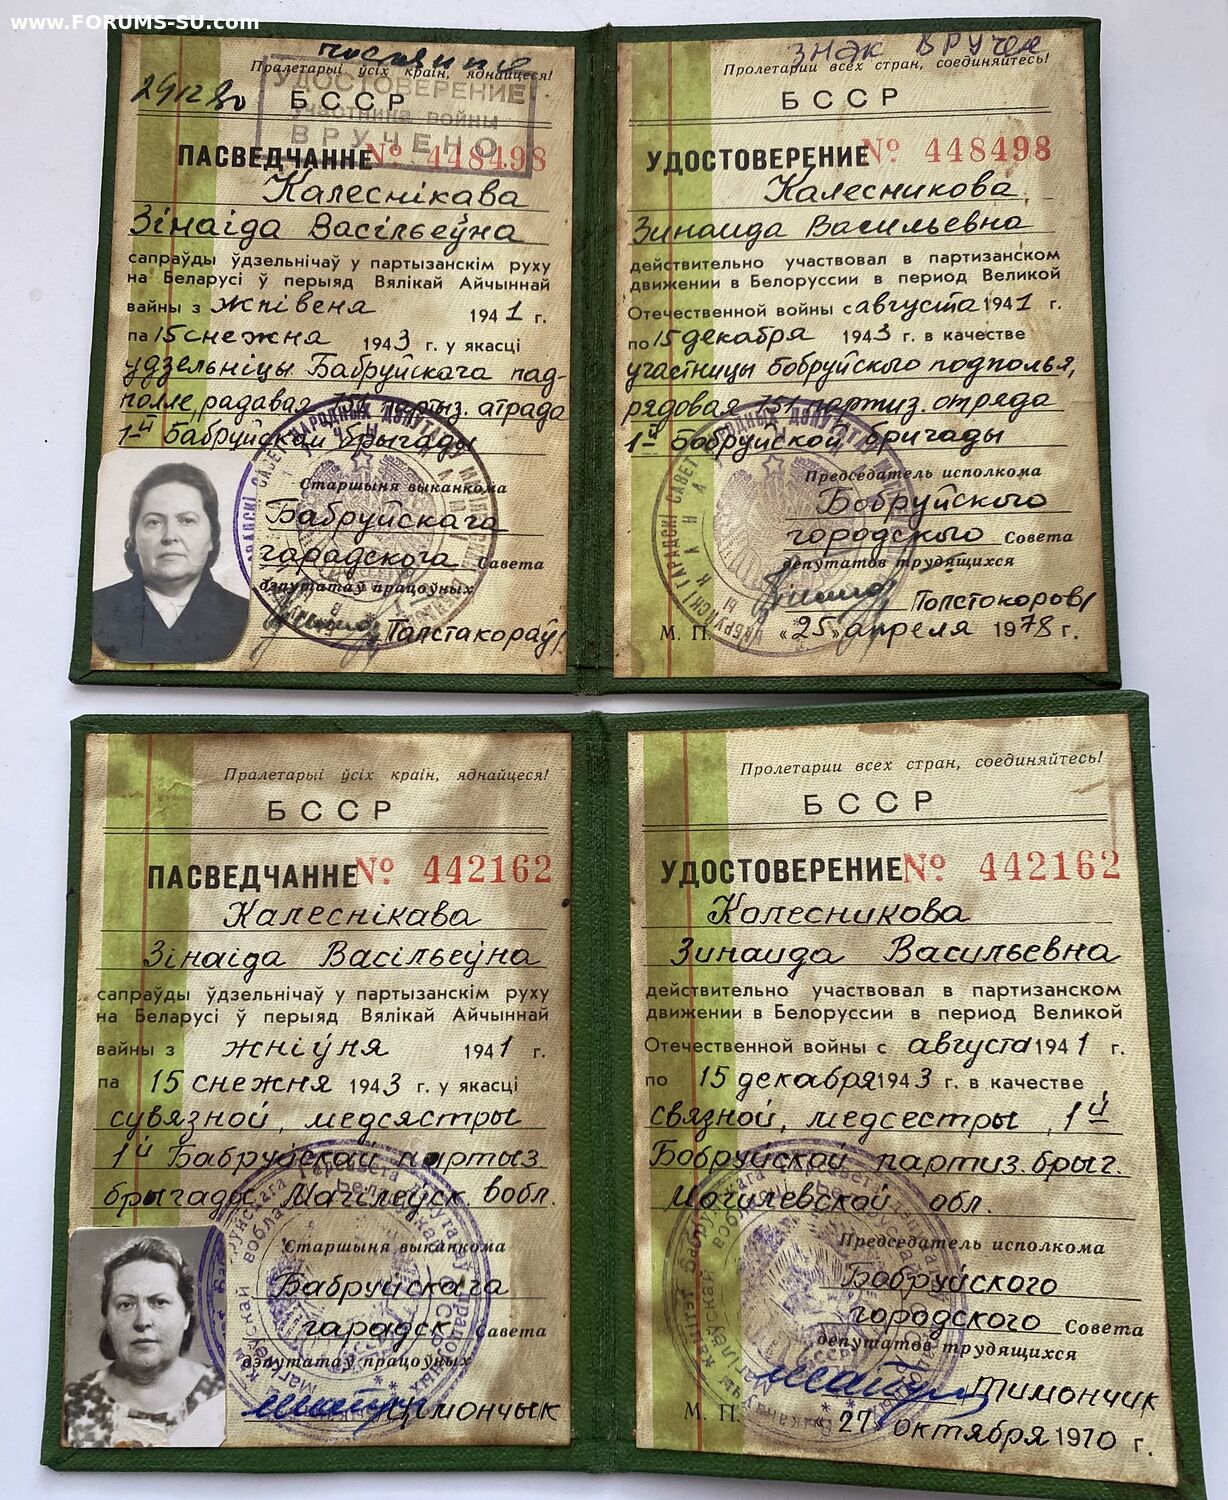 www.FORUMS-SU.com
Пралетарыі ўсіх краін, яднайцеся!
29 12 80
БССР
УДОСТОВЕРЕНИЕ
участника войны
ВРУЧЕНО
ПАСВЕДЧАННЕ № 448498
Калеснікава
Зінаіда Васільеўна
сапраўды ўдзельнічаў у партызанскім руху
на Беларусі ў перыяд Вялікай Айчыннай
вайны з жнівеня 1941 г.
па 15 снежня 1943 г. у якасці
удзельніцы Бабруйскага пад-
полле, радавая 751 партыз. атрада
1-й Бабруйскай брыгады
Старшыня выканкома
Бабруйскага
гарадскога Савета
дэпутатаў працоўных
Талстакораў
ЗНАК ВРУЧЕН
Пролетарии всех стран, соединяйтесь!
БССР
УДОСТОВЕРЕНИЕ № 448498
Калесникова
Зинаида Васильевна
действительно участвовал в партизанском
движении в Белоруссии в период Великой
Отечественной войны с августа 1941 г.
по 15 декабря 1943 г. в качестве
участницы бобруйского подполья,
рядовая 751 партиз. отряда
1-й Бобруйской бригады
Председатель исполкома
Бобруйского
городского Совета
депутатов трудящихся
Толстокоров
М. П. «25» апреля 1978 г.
Пралетарыі ўсіх краін, яднайцеся!
БССР
ПАСВЕДЧАННЕ № 442162
Калеснікава
Зінаіда Васільеўна
сапраўды ўдзельнічаў у партызанскім руху
на Беларусі ў перыяд Вялікай Айчыннай
вайны з жніўня 1941 г.
па 15 снежня 1943 г. у якасці
сувязной, медсястры
1й Бабруйскай партыз.
брыгады Магілеўск. вобл.
Старшыня выканкома
Бабруйскага
гарадск. Савета
дэпутатаў працоўных
Цімончык
Пролетарии всех стран, соединяйтесь!
БССР
УДОСТОВЕРЕНИЕ № 442162
Колесникова
Зинаида Васильевна
действительно участвовал в партизанском
движении в Белоруссии в период Великой
Отечественной войны с августа 1941 г.
по 15 декабря 1943 г. в качестве
связной, медсестры, 1й
Бобруйской партиз. бриг.
Могилевской обл.
Председатель исполкома
Бобруйского
городского Совета
депутатов трудящихся
Тимончик
М. П. «27» октября 1970 г.